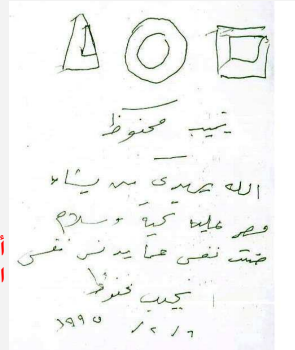 نجيب محفوظ
الله يهدي من يشاء
مصر عليها تحية وسلام
صنت نفسي عما يدنس نفسي
نجيب محفوظ
١٩٩٥